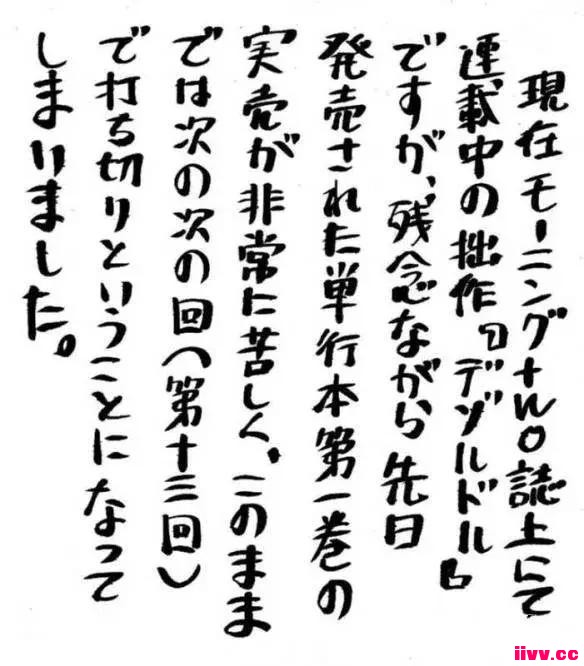 現在モーニング+TWO誌上にて
連載中の拙作『デゾルドル』
ですが、残念ながら先日
発売された単行本第一巻の
実売が非常に苦しく、このまま
では次の次の回（第十三回）
で打ち切りということになって
しまいました。
jivv.cc